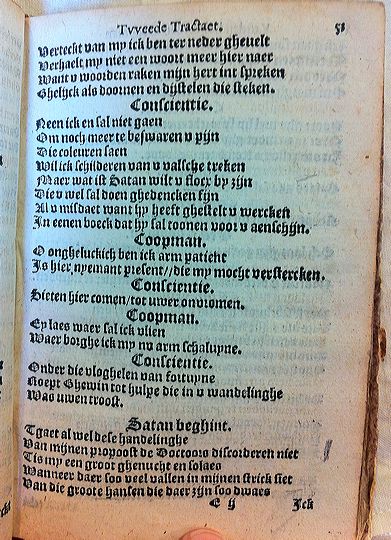 Tvveede Tractaet. 51
Verteckt van my ick ben ter neder ghevelt
Verhaelt my niet een woort meer hier naer
Want v woorden raken mijn hert int spreken
Ghelijck als doornen en dijstelen die steken.
Conscientie.
Neen ick en sal niet gaen
Om noch meer te beswaren v pijn
Die coleuren saen
Wil ick schilderen van v valsche treken
Maer wat ist Satan wilt v flocx by zijn
Die v wel sal doen ghedencken fijn
Al v misdaet want hy heeft ghestelt v wercken
In eenen boeck dat hy sal toonen voor v aenschijn.
Coopman.
O ongheluckich ben ick arm patient
Is hier nyemant present//die my mocht verstercken.
Conscientie.
Sieten hier comen/tot uwer onvromen.
Coopman.
Ey laes waer sal ick vlien
Waer borghe ick my nv arm schalupne.
Conscientie.
Onder die vloghelen van fortupne
Roept Ghewin tot hulpe die in v wandelinghe
Was uwen troost.
Satan beghint.
Tgaet al wel dese handelinghe
Van mijnen propoost de Doctoors discorderen niet
Tis my een groot ghenucht en solaes
Wanneer daer soo veel vallen in mijnen strick siet
Van die groote hansen die daer zijn soo dwaes
E ij Ick